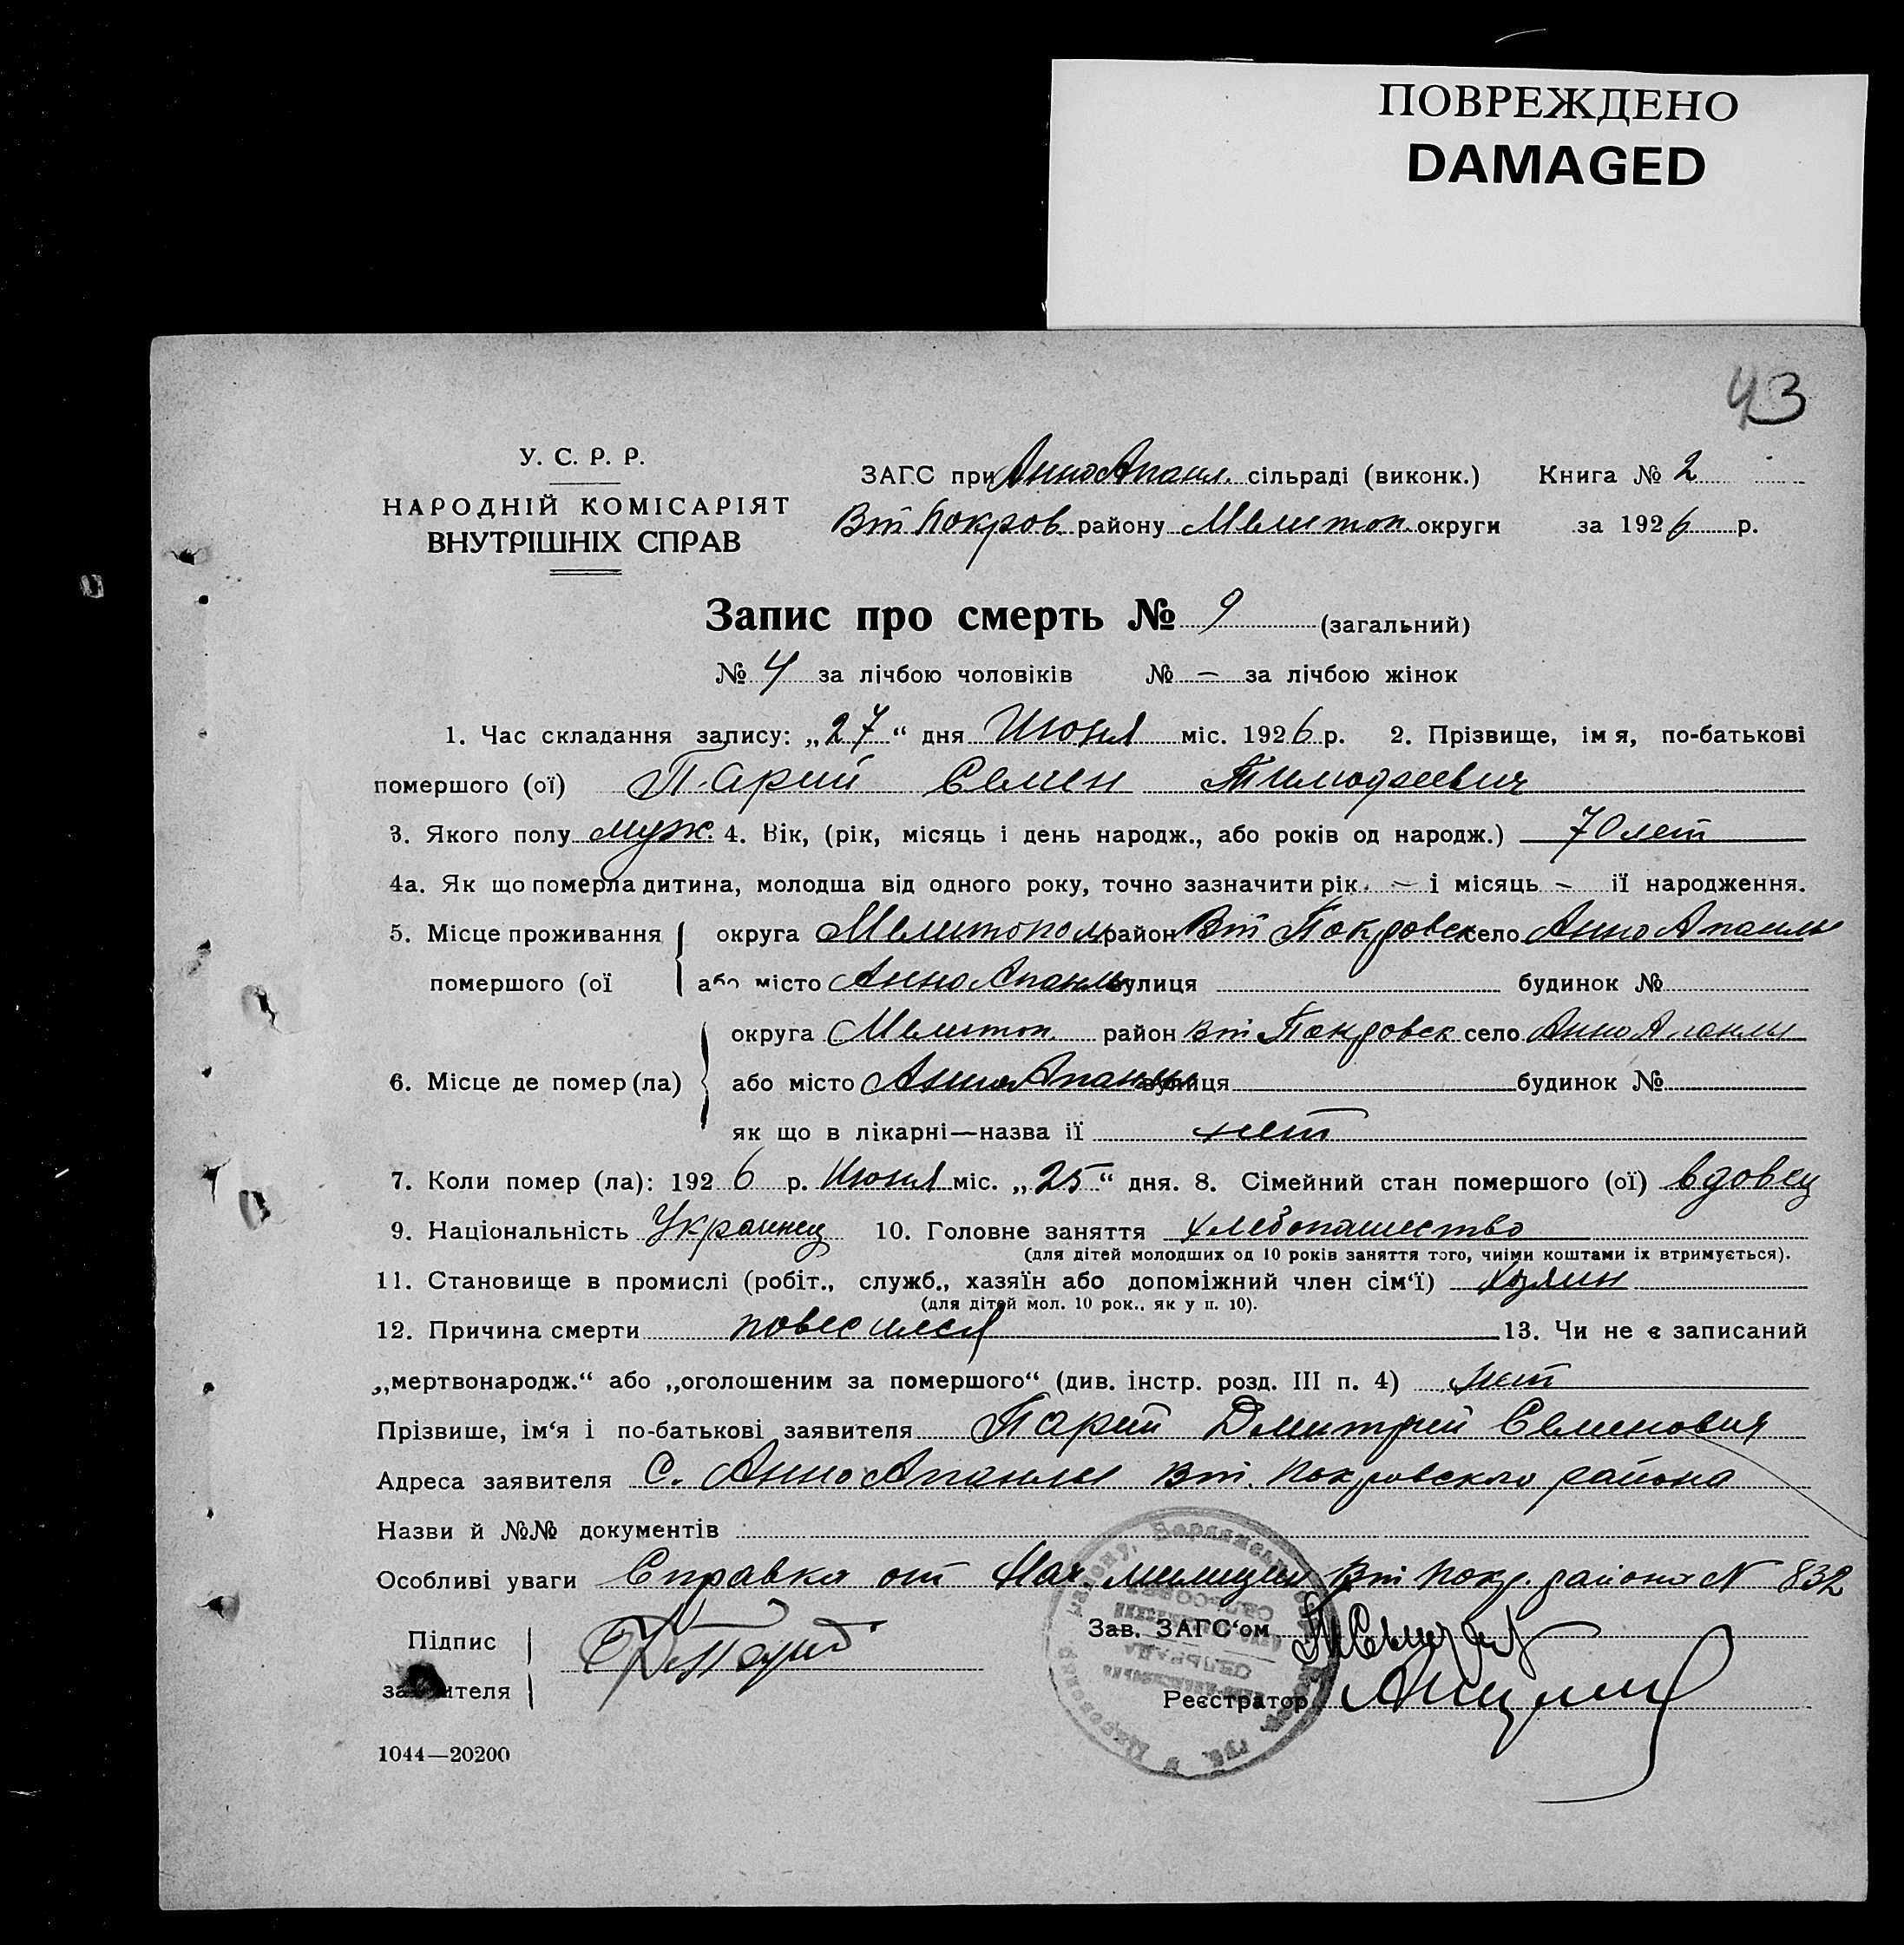 ПОВРЕЖДЕНО
DAMAGED
43
У. С. Р. Р.
НАРОДНІЙ КОМІСАРІЯТ
ВНУТРІШНІХ СПРАВ
ЗАГС при АнноАпанл. сільраді (виконк.) Книга № 2
Вт Покров району Мелитоп. округи за 1926 р.
Запис про смерть № 9 (загальний)
№ 4 за лічбою чоловіків № — за лічбою жінок
1. Час складання запису: „27“ дня Июня міс. 1926 р. 2. Прізвище, імя, по-батькові
помершого (ої) Парий Семен Тимофеевич
3. Якого полу муж. 4. Вік, (рік, місяць і день народж., або років од народж.) 70 лет
4а. Як що померла дитина, молодша від одного року, точно зазначити рік — і місяць — ії народження.
5. Місце проживання округа Мелитопол район Вт Покровск село Анно Апанлы
помершого (ої або місто Анно Апанлы вулиця будинок №
округа Мелитоп. район Вт Покровск село Анно Апанлы
6. Місце де помер (ла) або місто Анно Апанлы вулиця будинок №
як що в лікарні—назва ії нет
7. Коли помер (ла): 1926 р. Июня міс. „25“ дня. 8. Сімейний стан помершого (ої) вдовец
9. Національність Украинец 10. Головне заняття хлебопашество
(для дітей молодших од 10 років заняття того, чиїми коштами їх втримується).
11. Становище в промислі (робіт., служб., хазяїн або допоміжний член сім‘ї) хозяин
(для дітей мол. 10 рок., як у п. 10).
12. Причина смерти повесился 13. Чи не є записаний
„мертвонародж.“ або „оголошеним за помершого“ (див. інстр. розд. III п. 4) нет
Прізвише, ім‘я і по-батькові заявителя Парий Дмитрий Семенович
Адреса заявителя С. Анно Апанлы Вт. Покровского района
Назви й №№ документів
Особливі уваги Справка от Нач милиции Вт Покр. района N 832
Підпис Зав. ЗАГС‘ом
заявителя Реєстратор
1044—20200